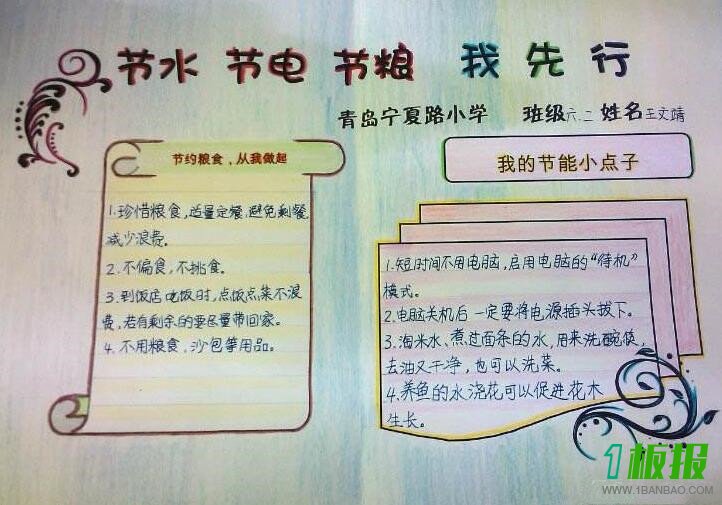 节水 节电 节粮 我先行
青岛宁夏路小学 班级六.二 姓名王文靖
节约粮食，从我做起
1.珍惜粮食,适量定餐,避免剩餐,
减少浪费。
2.不偏食,不挑食。
3.到饭店吃饭时,点饭点菜不浪
费,若有剩余的要尽量带回家。
4.不用粮食,沙包等用品。
我的节能小点子
1.短时间不用电脑,启用电脑的“待机”
模式。
2.电脑关机后一定要将电源插头拔下。
3.淘米水、煮过面条的水,用来洗碗筷,
去油又干净,也可以洗菜。
4.养鱼的水浇花可以促进花木
生长。
1板报
WWW.1BANBAO.COM